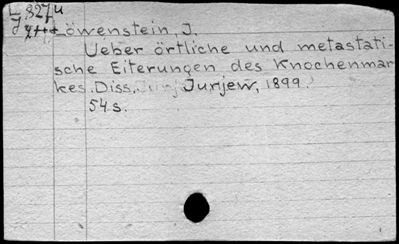 Löwenstein, J.
Ueber örtliche und metastati-
sche Eiterungen des Knochenmar
kes. Diss. Jurjew, 1899.
54 s.